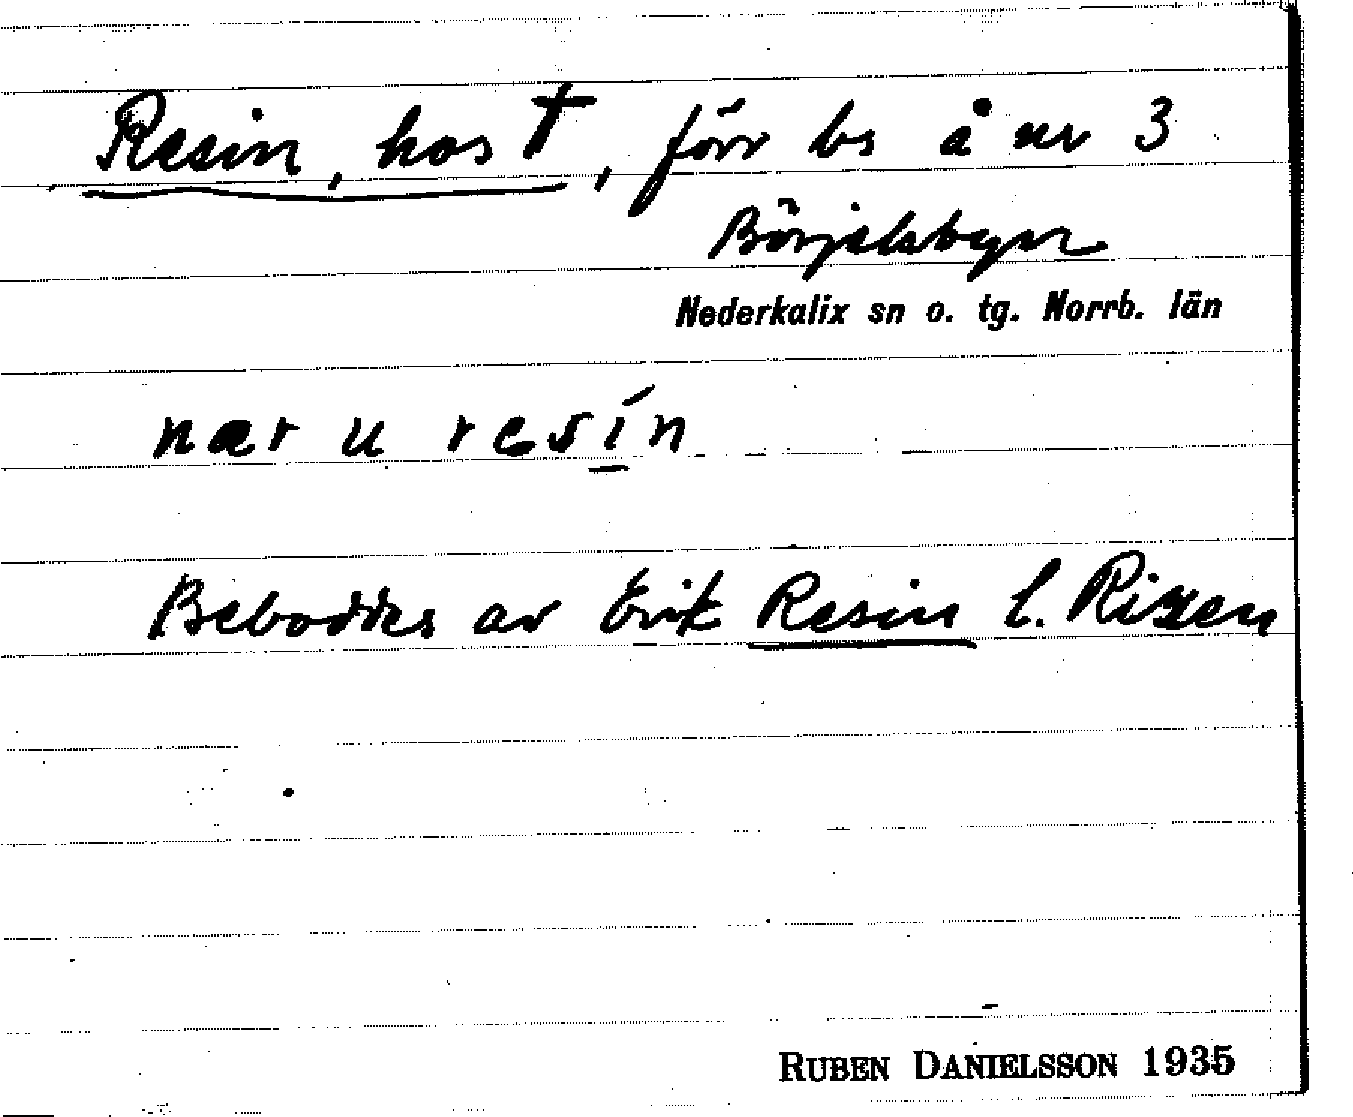 Resin, hos †, förr bs å nr 3
Börjelsbyn
Nederkalix sn o. tg. Norrb. län
nær u resín
Beboddes av Erik Resin l. Rixen
RUBEN DANIELSSON 1935